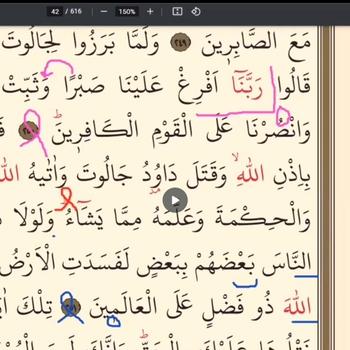 42 / 616 — 150% +
مَعَ الصَّابِرِينَ ﴿٢٤٩﴾ وَلَمَّا بَرَزُوا لِجَالُوتَ
قَالُوا رَبَّنَا اَفْرِغْ عَلَيْنَا صَبْرًا وَثَبِّتْ
وَانْصُرْنَا عَلَى الْقَوْمِ الْكَافِرِينَ
بِاِذْنِ اللهِ وَقَتَلَ دَاوُدُ جَالُوتَ وَاٰتٰيهُ اللهُ
وَالْحِكْمَةَ وَعَلَّمَهُ مِمَّا يَشَٓاءُ وَلَوْلَا
النَّاسَ بَعْضَهُمْ بِبَعْضٍ لَفَسَدَتِ الْاَرْضُ
اللهَ ذُو فَضْلٍ عَلَى الْعَالَمِينَ تِلْكَ